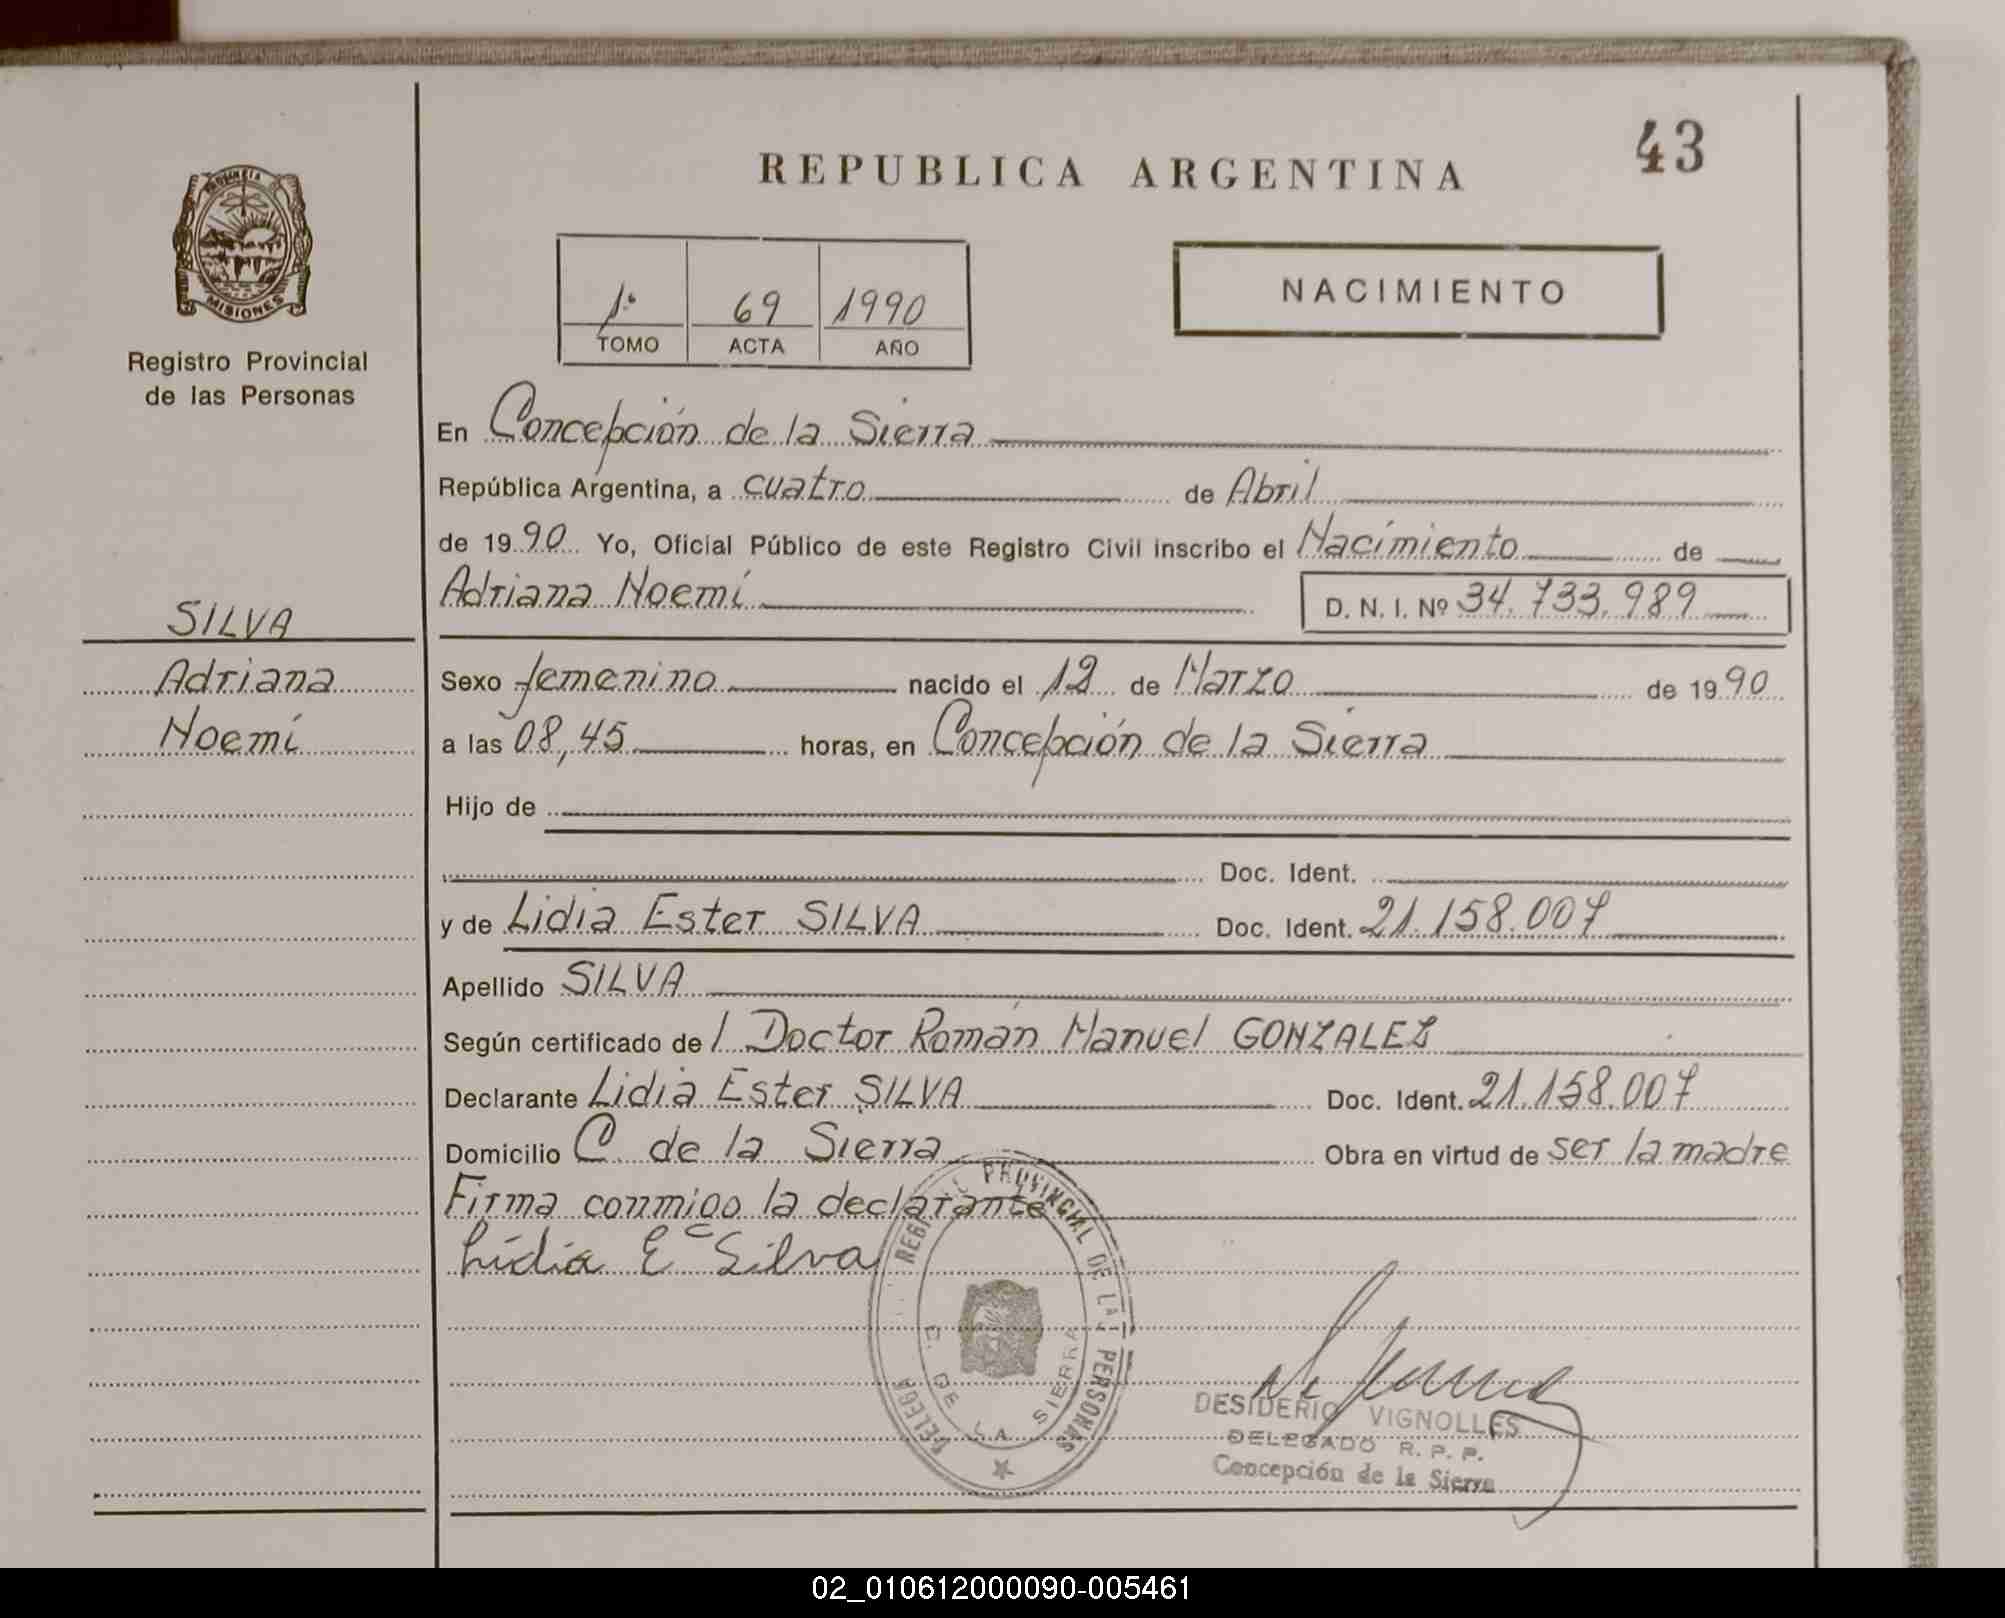 43
REPUBLICA ARGENTINA
PROVINCIA
MISIONES
Registro Provincial
de las Personas
1º 69 1990
TOMO ACTA AÑO
NACIMIENTO
En Concepción de la Sierra
República Argentina, a cuatro de Abril
de 1990 Yo, Oficial Público de este Registro Civil inscribo el Nacimiento de
Adriana Noemí D. N. I. Nº 34.733.989
SILVA
Adriana
Noemí
Sexo femenino nacido el 12 de Marzo de 1990
a las 08,45 horas, en Concepción de la Sierra
Hijo de
Doc. Ident.
y de Lidia Ester SILVA Doc. Ident. 21.158.007
Apellido SILVA
Según certificado de l Doctor Román Manuel GONZALEZ
Declarante Lidia Ester SILVA Doc. Ident. 21.158.007
Domicilio C. de la Sierra Obra en virtud de ser la madre
Firma conmigo la declarante
Lidia E Silva
PROVINCIAL DE LAS PERSONAS
C. DE LA SIERRA
DESIDERIO VIGNOLLES
DELEGADO R. P. P.
Concepción de la Sierra
02_010612000090-005461